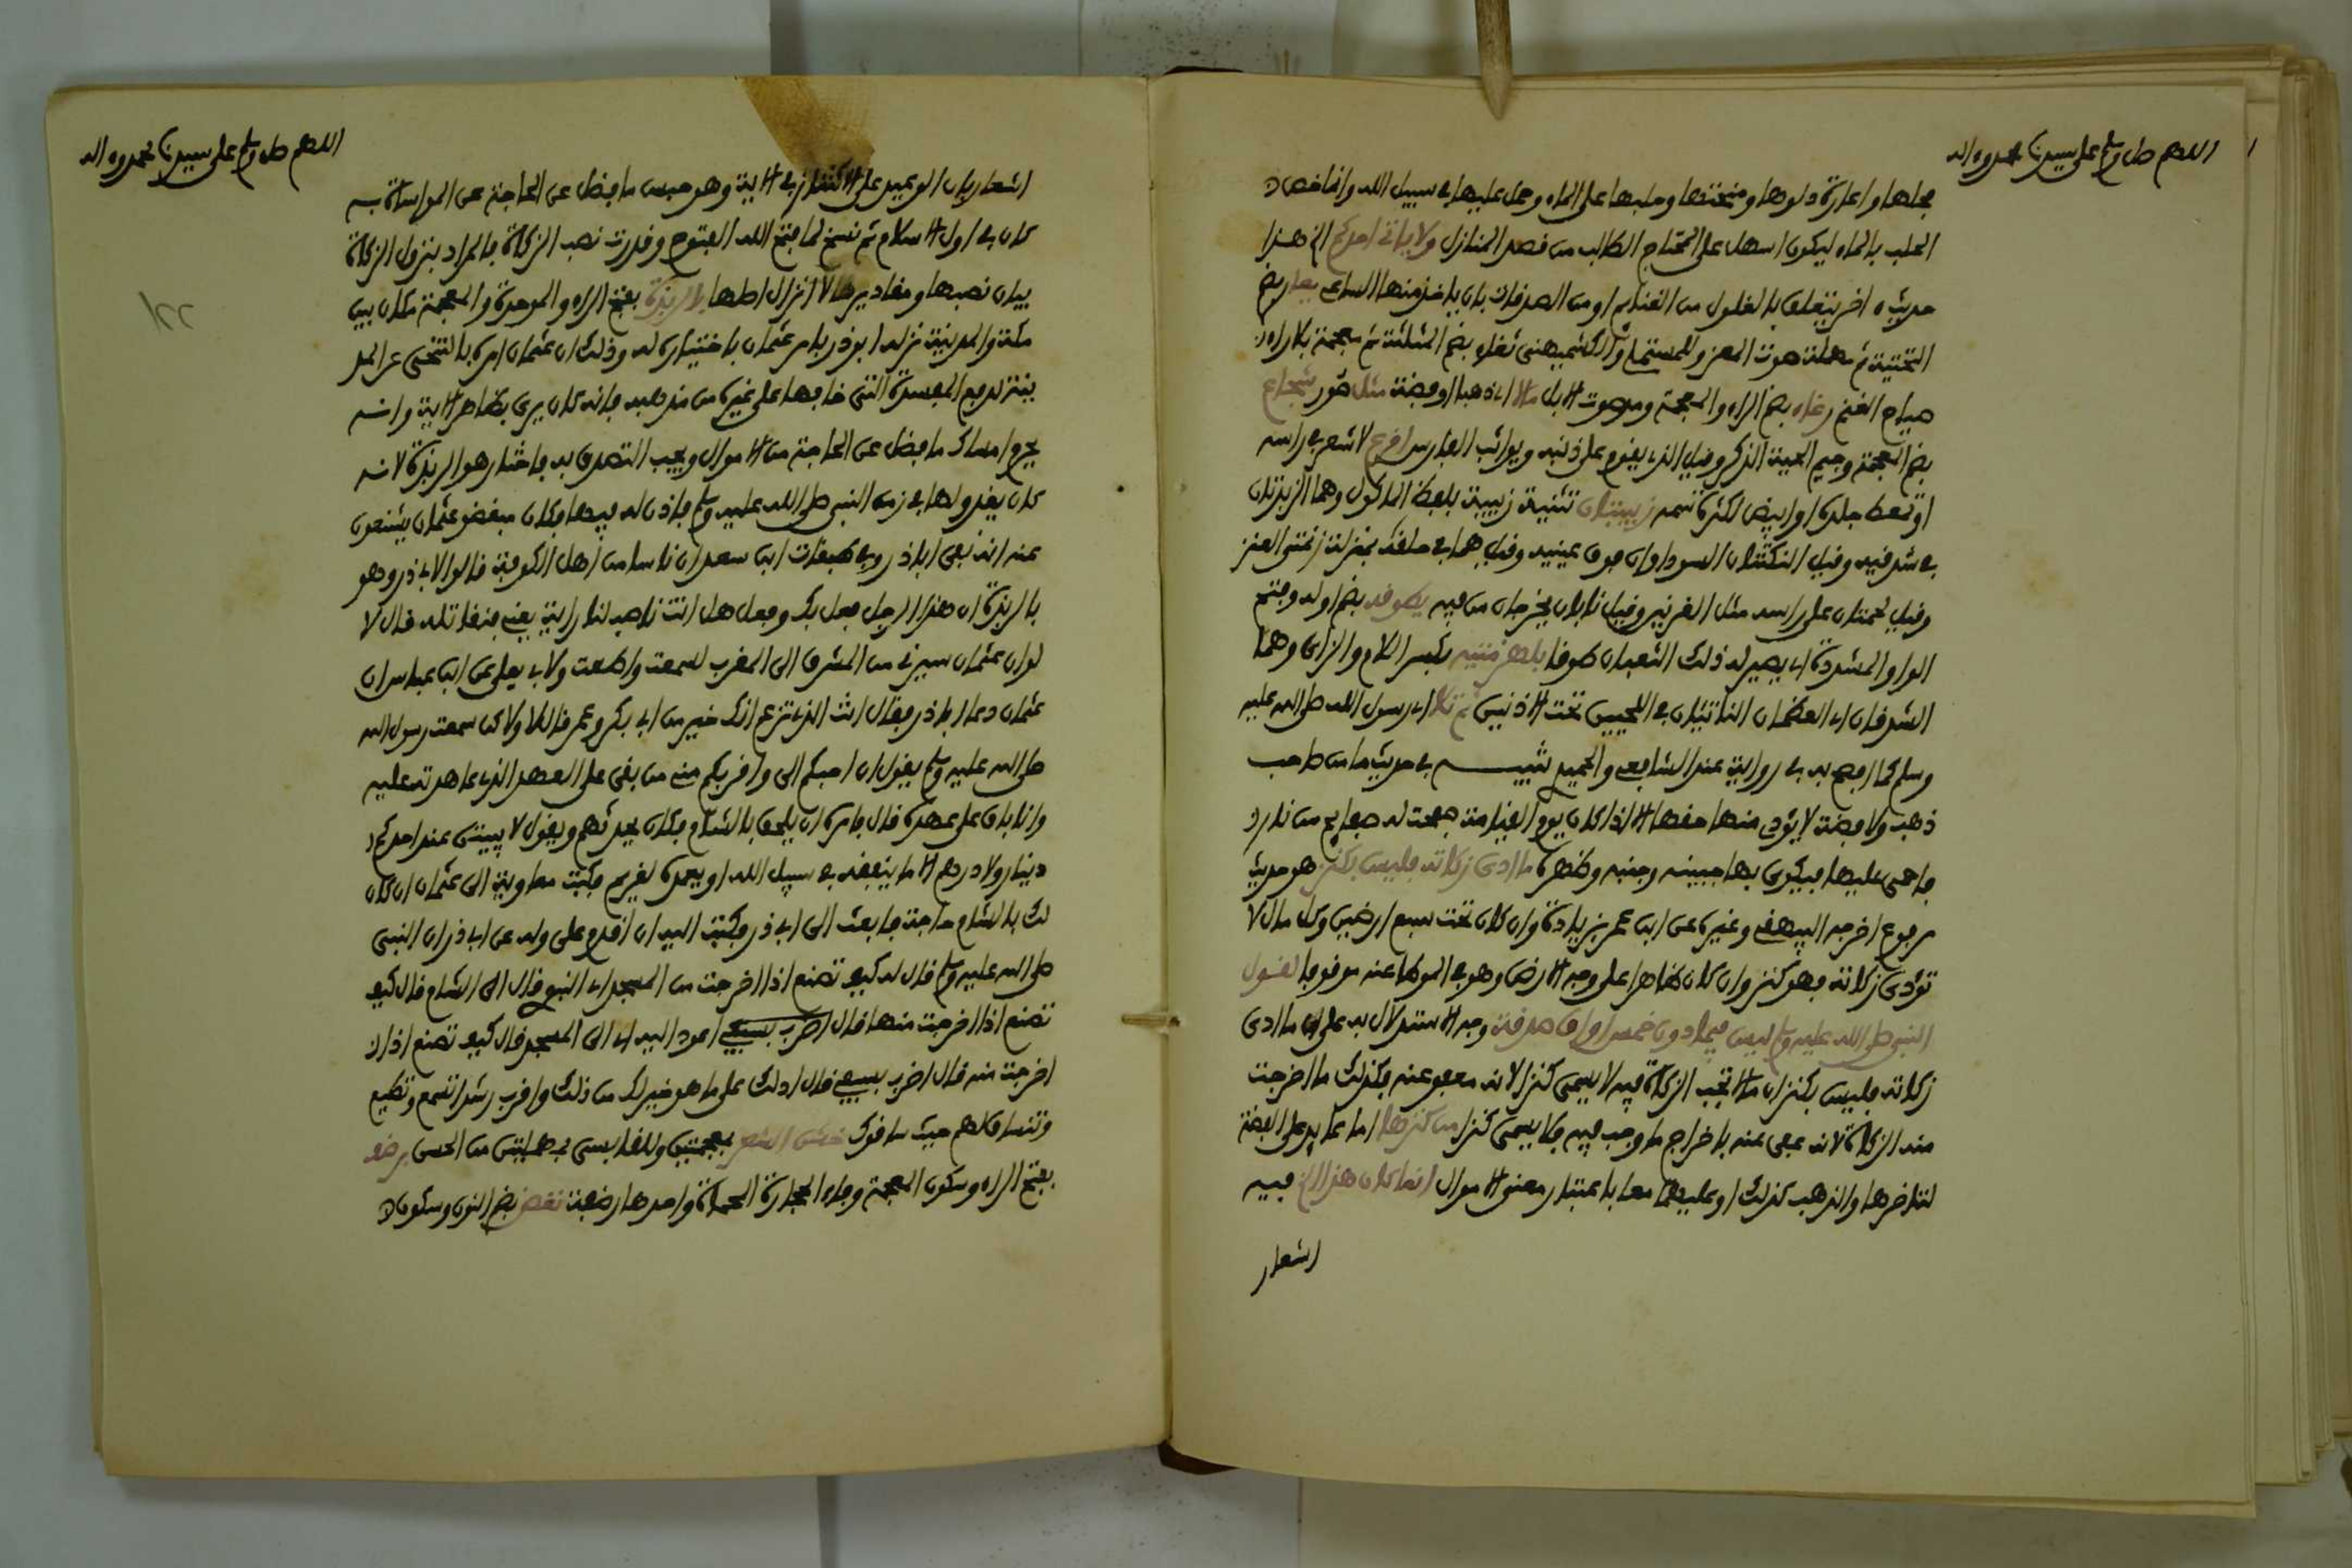 اللهم صل وسلم على سيدنا محمد واله
فحلها واعارة دلوها ومنحتها وحلبها على الماء وحمل عليها في سبيل الله وانما خص
الحلب بالماء ليكون اسهل على المحتاج الطالب من قصد المنازل ولا ياتي احدكم الخ هذا
حديث اخر يتعلق بالغلول من الغنائم او من الصدقات بان ياخذ منها الساعي يعار بضم
التحتية ثم مهملة صوت المعز وللمستملي والكشميهني ثغاء بضم المثلثة ثم معجمة بلا راء
صياح الغنم رغاء بضم الراء والمعجمة ومد صوت الابل مالا اي ذهبا او فضة مثل صور شجاع
بضم المعجمة وجيم الحية الذكر وقيل الذي يقوم على ذنبه ويواثب الفارس اقرع لا شعر في راسه
او تمعط جلده او ابيض لكثرة سمه زبيبتان تثنية زبيبة بلفظ الماكول وهما الزبدتان
في شدقيه وقيل النكتتان السوداوان فوق عينيه وقيل هما في حلقه بمنزلة زنمتي العنز
وقيل لحمتان على راسه مثل القرنين وقيل نابان يخرجان من فيه يطوقه بضم اوله وفتح
الواو المشددة اي يصير له ذلك الثعبان طوقا بلهزمتيه بكسر اللام والزاي وهما
الشدقان اي العظمان الناتئان في اللحيين تحت الاذنين ثم تلا اي رسول الله صلى الله عليه
وسلم كما افصح به في رواية عند الشافعي والحميدي تنبيه في حديث ما من صاحب
ذهب ولا فضة لا يؤدي منها حقها الا اذا كان يوم القيامة صفحت له صفايح من نار
فاحمي عليها فيكوى بها جبينه وجنبه وظهره ما ادى زكاته فليس بكنز هو حديث
مرفوع اخرجه البيهقي وغيره عن ابن عمر بزيادة وان كان تحت سبع ارضين وكل مال لا
تؤدى زكاته فهو كنز وان كان ظاهرا على وجه الارض وهو في الموطا عنه موقوفا لقول
النبي صلى الله عليه وسلم ليس فيما دون خمس اواق صدقة وجه الاستدلال به على ان ما ادى
زكاته فليس بكنز ان ما لا تجب الزكاة فيه لا يسمى كنزا لانه معفو عنه فكذلك ما اخرجت
منه الزكاة لانه عفي عنه باخراج ما وجب فيه فلا يسمى كنزا من كنزها اما عائد على الفضة
لتاخرها والذهب كذلك او عليهما معا باعتبار معنى الاموال انما كان هذا الخ فيه
اشعار
اللهم صل وسلم على سيدنا محمد واله
اشعار بان الوعيد على الاكتناز في الاية وهو حبس ما فضل عن الحاجة عن المواساة به
كان في اول الاسلام ثم نسخ لما فتح الله الفتوح وقدرت نصب الزكاة فالمراد بنزول الزكاة
بيان نصبها ومقاديرها لا انزال اصلها بالربذة بفتح الراء والموحدة والمعجمة مكان بين
مكة والمدينة نزله ابو ذر بامر عثمان باختياره له وذلك ان عثمان امره بالتنحي عن المد
ينة لدفع المفسدة التي خافها على غيره من مذهبه فانه كان يرى بظاهر الاية وانه
يحرم امساك ما فضل عن الحاجة من الاموال ويجب التصدق به فاختار هو الربذة لانه
كان يغدو لها في زمن النبي صلى الله عليه وسلم فاذن له فيها فكان مبغضو عثمان يشنعون
عنه انه نفى ابا ذر وفي طبقات ابن سعد ان ناسا من اهل الكوفة قالوا لابي ذر وهو
بالربذة ان هذا الرجل فعل بك وفعل هل انت ناصب لنا راية يعني فنقاتله قال لا
لو ان عثمان سيرني من المشرق الى المغرب لسمعت واطعت ولابي يعلى عن ابن عباس ان
عثمان دعا ابا ذر فقال انت الذي تزعم انك خير من ابي بكر وعمر قال لا ولاكن سمعت رسول الله
صلى الله عليه وسلم يقول ان احبكم الي واقربكم مني من بقي على العهد الذي عاهدته عليه
وانا باق على عهده قال فامره ان يلحق بالشام فكان يحدثهم ويقول لا يبيتن عند احدكم
دينار ولا درهم الا ما ينفقه في سبيل الله او يعده لغريم فكتب معاوية الى عثمان ان كان
لك بالشام حاجة فابعث الى ابي ذر فكتب اليه ان اقدم علي وله عن ابي ذر ان النبي
صلى الله عليه وسلم قال له كيف تصنع اذا اخرجت من المسجد اي النبوي قال اتي الشام قال كيف
تصنع اذا اخرجت منها قال اعود اليه اي الى المسجد قال كيف تصنع اذا
اخرجت منه قال اضرب بسيفي قال ادلك على ما هو خير لك من ذلك واقرب رشدا تسمع وتطيع
وتنساق لهم حيث ساقوك خشن الشعر بمعجمتين وللقابسي بمهملتين من الحسن برضف
بفتح الراء وسكون المعجمة وفاء الحجارة المحماة واحدها رضفة نغض بضم النون وسكون